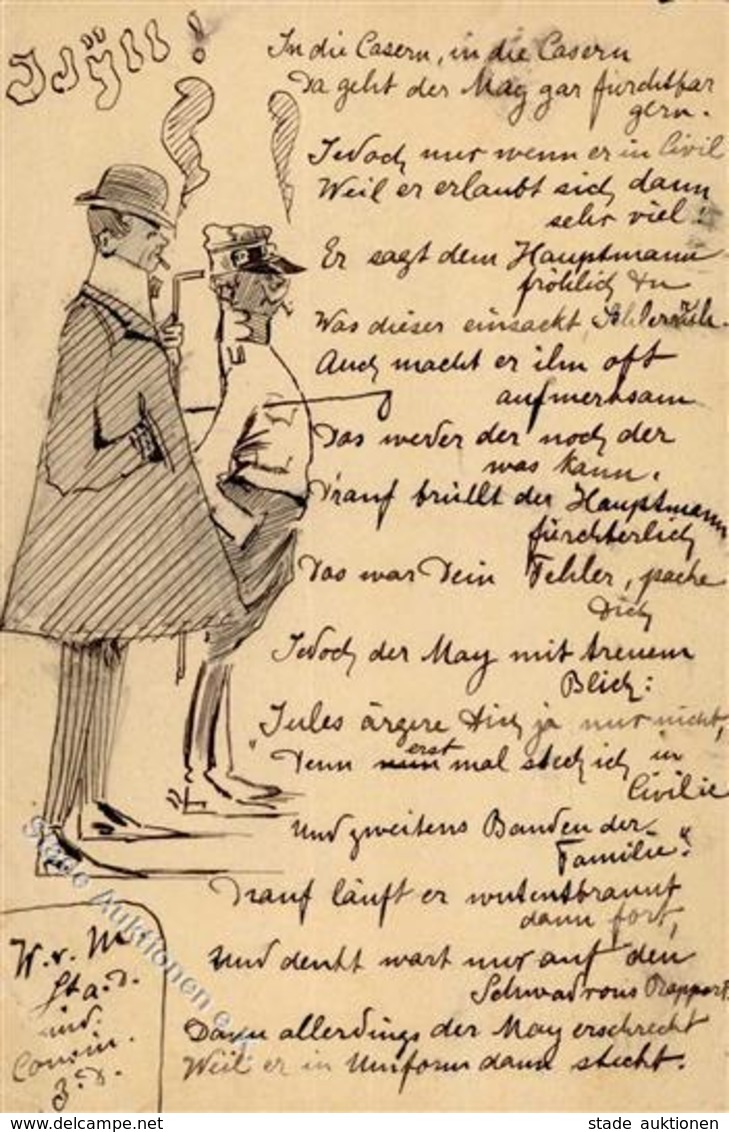 Idÿll!
In die Casern, in die Casern
Da geht der May gar fürchtbar
gern.
Jedoch nur wenn er in Civil
Weil er erlaubt sich dann
sehr viel!
Er sagt dem Hauptmann
fröhlich Du
Was dieser einsackt,
Auch macht er ihn oft
aufmerksam
Das weder der noch der
was kann.
Drauf brüllt der Hauptmann
fürchterlich
Das war Dein Fehler, pache
Dich
Jedoch der May mit treuem
Blick:
"Jules ärgere Dich ja nur nicht,
Denn erst mal steck ich in
Civilie
Und zweitens Banden der
Familie."
Drauf läuft er wutentbrannt
dann fort,
Und denkt wart nur auf den
Schwadrons Rapport
Dann allerdings der May erschrecht
Weil er in Uniform dann stecht.
W. v. M
St a. D.
und.
Cousin.
z. D.
Stade Auktionen
stade auktionen